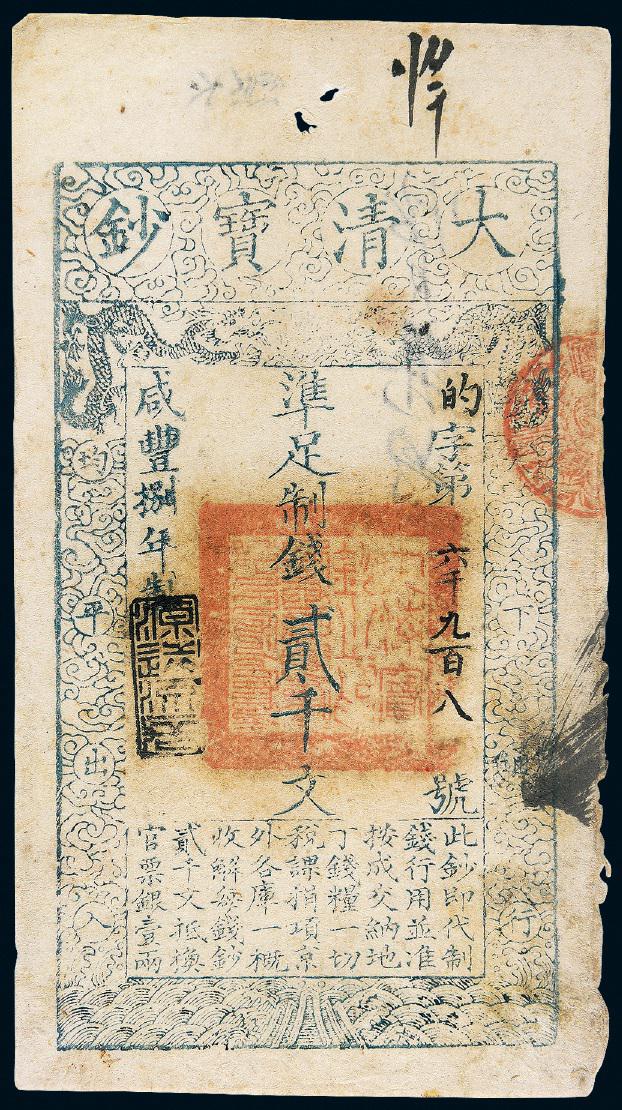 大清寶鈔
的字第六千九百八號
準足制錢貳千文
咸豐捌年製
天下通行
均平出入
此鈔即代制
錢行用並准
按成交納地
丁錢糧一切
稅課捐項京
外各庫一概
收解每錢鈔
貳千文抵換
官票銀壹兩